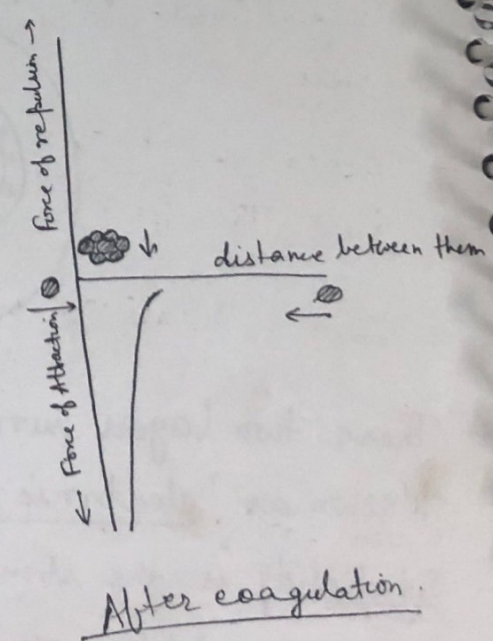 Force of repulsion →
distance between them
← Force of Attraction
After coagulation.